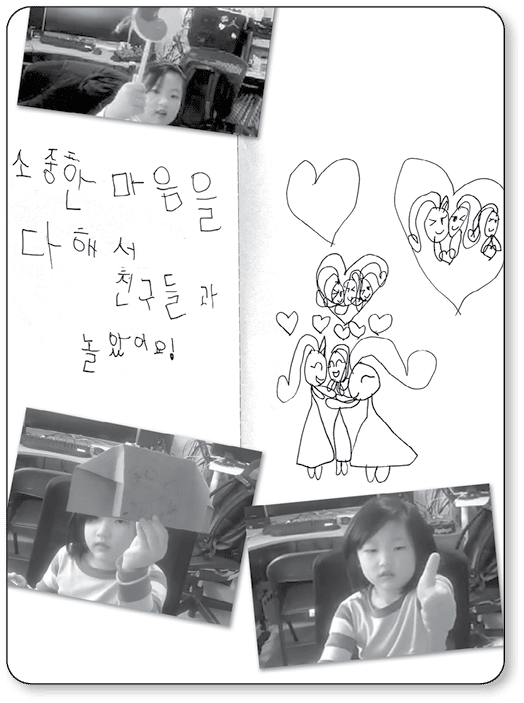 소중한 마음을
다해서
친구들과
놀았어요!